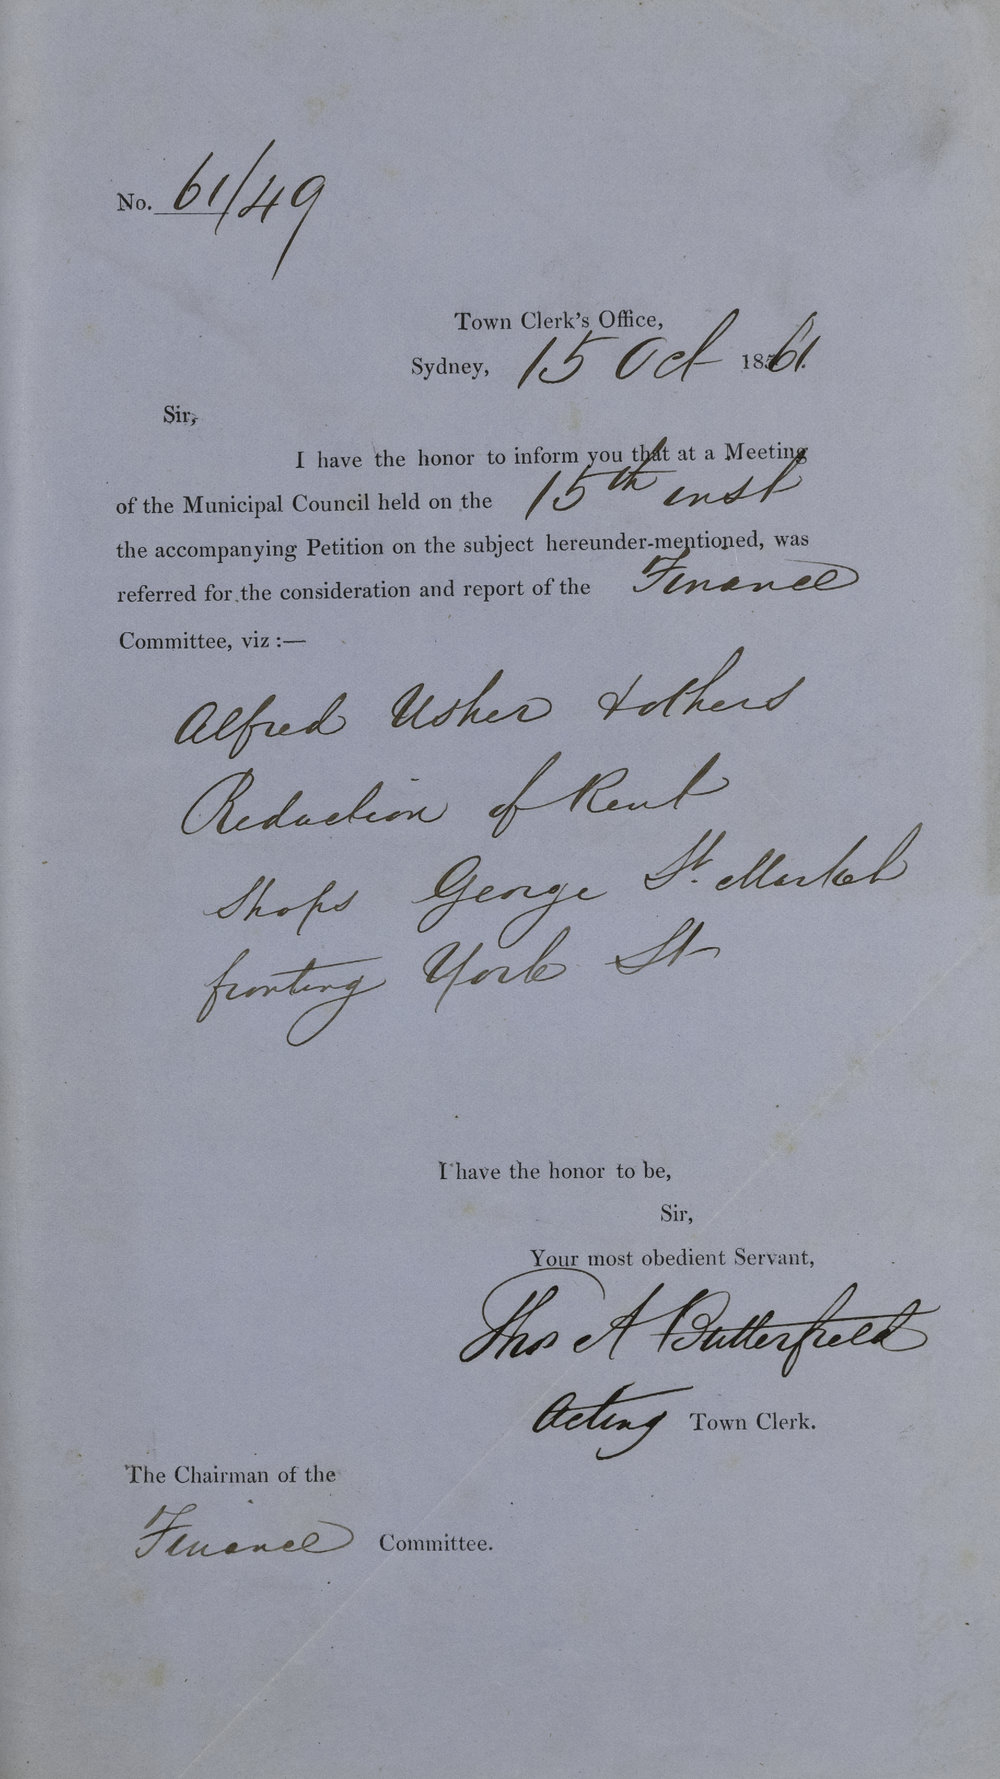 No. 61/49
Town Clerk's Office,
Sydney, 15 Oct 1861.
Sir,
I have the honor to inform you that at a Meeting
of the Municipal Council held on the 15th inst
the accompanying Petition on the subject hereunder-mentioned, was
referred for the consideration and report of the Finance
Committee, viz :—
Alfred Usher & others
Reduction of Rent
Shops George St. Market
fronting York St
I have the honor to be,
Sir,
Your most obedient Servant,
Thos A Butterfield
Acting Town Clerk.
The Chairman of the
Finance Committee.